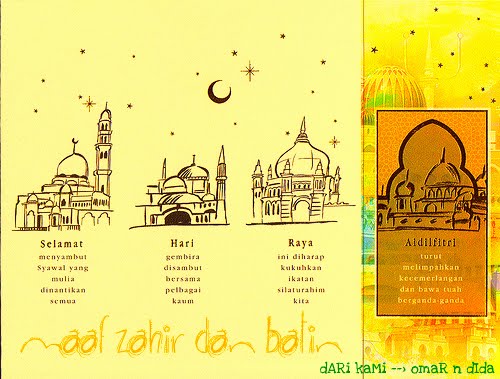 Selamat
menyambut
Syawal yang
mulia
dinantikan
semua
Hari
gembira
disambut
bersama
pelbagai
kaum
Raya
ini diharap
kukuhkan
ikatan
silaturahim
kita
Aidilfitri
turut
melimpahkan
kecemerlangan
dan bawa tuah
berganda-ganda
maaf zahir dan batin
dARi kaMi --> omaR n dIda